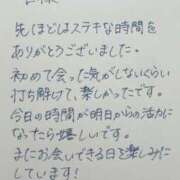 様
先ほどはステキな時間を
ありがとうございました。
初めて会った気がしないくらい
打ち解けて、楽しかったです。
今日の時間が明日からの活力に
なったら嬉しいです。
またお会いできる日を楽しみに
しています!